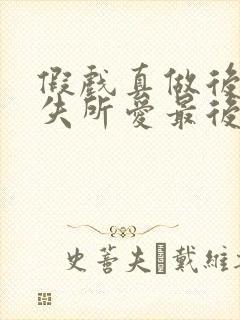 假戲真做後
失所愛最後
史蒂夫 戴維